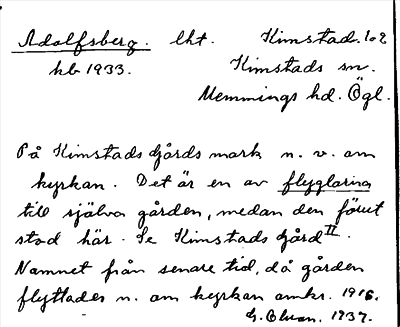 Adolfsberg. lht. Kimstad. 1o2
hb 1933. Kimstads sn.
Memmings hd. Ögl.
På Kimstads Gårds mark n. v. om
kyrkan. Det är en av flyglarna
till själva gården, medan den förut
stod här. Se Kimstads Gård II.
Namnet från senare tid, då gården
flyttades n. om kyrkan omkr. 1916.
1937.